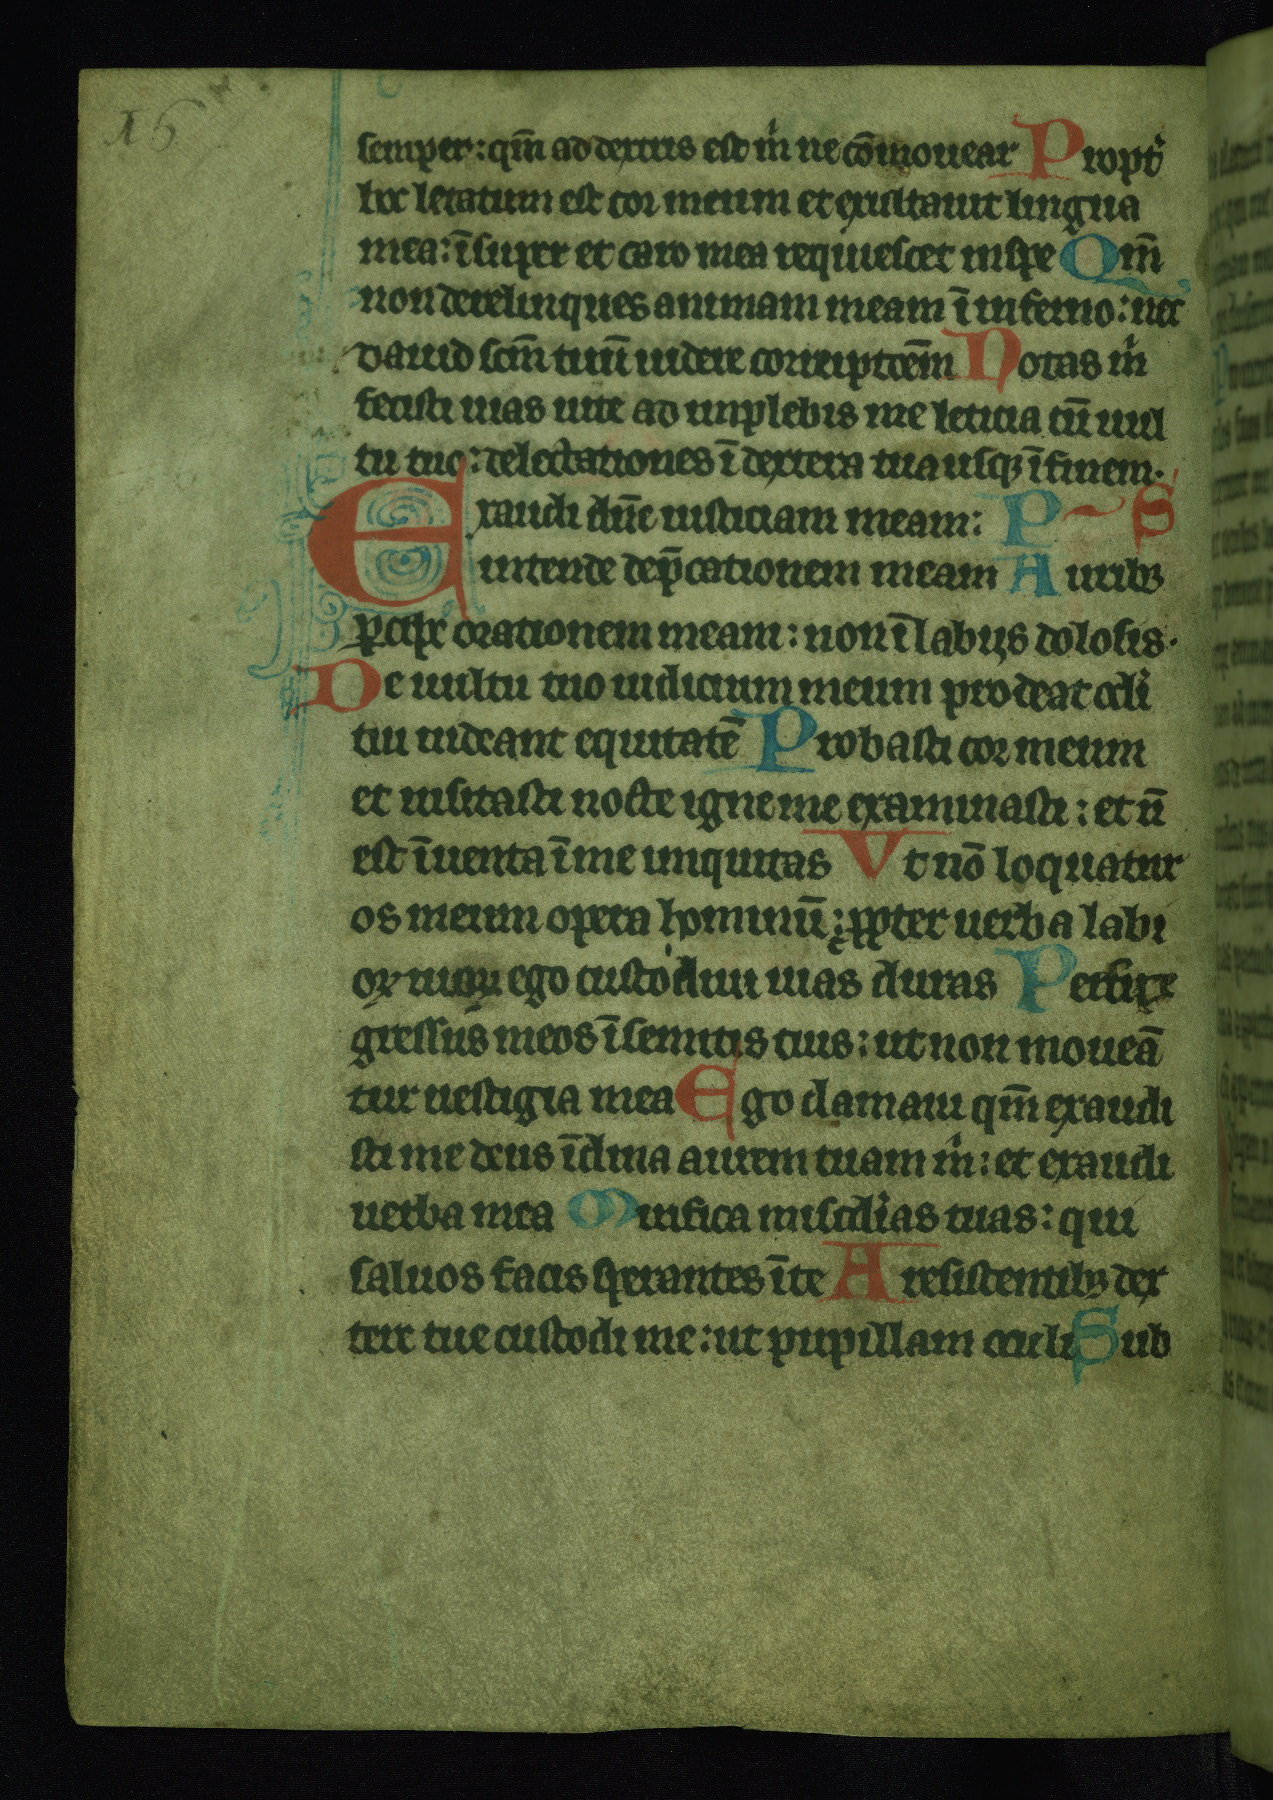 16
semper: qm̄ ad dextris est m̍ ne cōmouear Propt̍
hoc letatum est cor meum et exultauit lingua
mea: ī super et caro mea requiescet in spe Qm̄
non derelinques animam meam ī inferno: nec
dauid scm̄ tuū uidere corruptōem Notas m̍
fecisti uias uite ad inplebis me leticia cū uul
tu tuo: delectationes ī dextera tua usqꝫ ī finem.
Exaudi dn̄e iusticiam meam: P S
intende dep̄cationem meam Auribꝫ
p̄cipe orationem meam: non ī labijs dolosis.
De uultu tuo iudicium meum prodeat oculi
tui uideant equitatē Probasti cor meum
et uisitasti nocte igne me examinasti: et n̄
est īuenta ī me iniquitas Vt nō loquatur
os meum opera hominū: ꝓpter uerba labi
oꝝ tuoꝝ ego custodiui uias duras Perfice
gressus meos ī semitis tuis: ut non moueā
tur uestigia mea Ego clamaui qm̄ exaudi
sti me deus īclina aurem tuam m̍: et exaudi
uerba mea Mirifica mis̄cdias tuas: qui
saluos facis sperantes ī te A resistentibꝫ dex
tere tue custodi me: ut pupillam oculi Sub